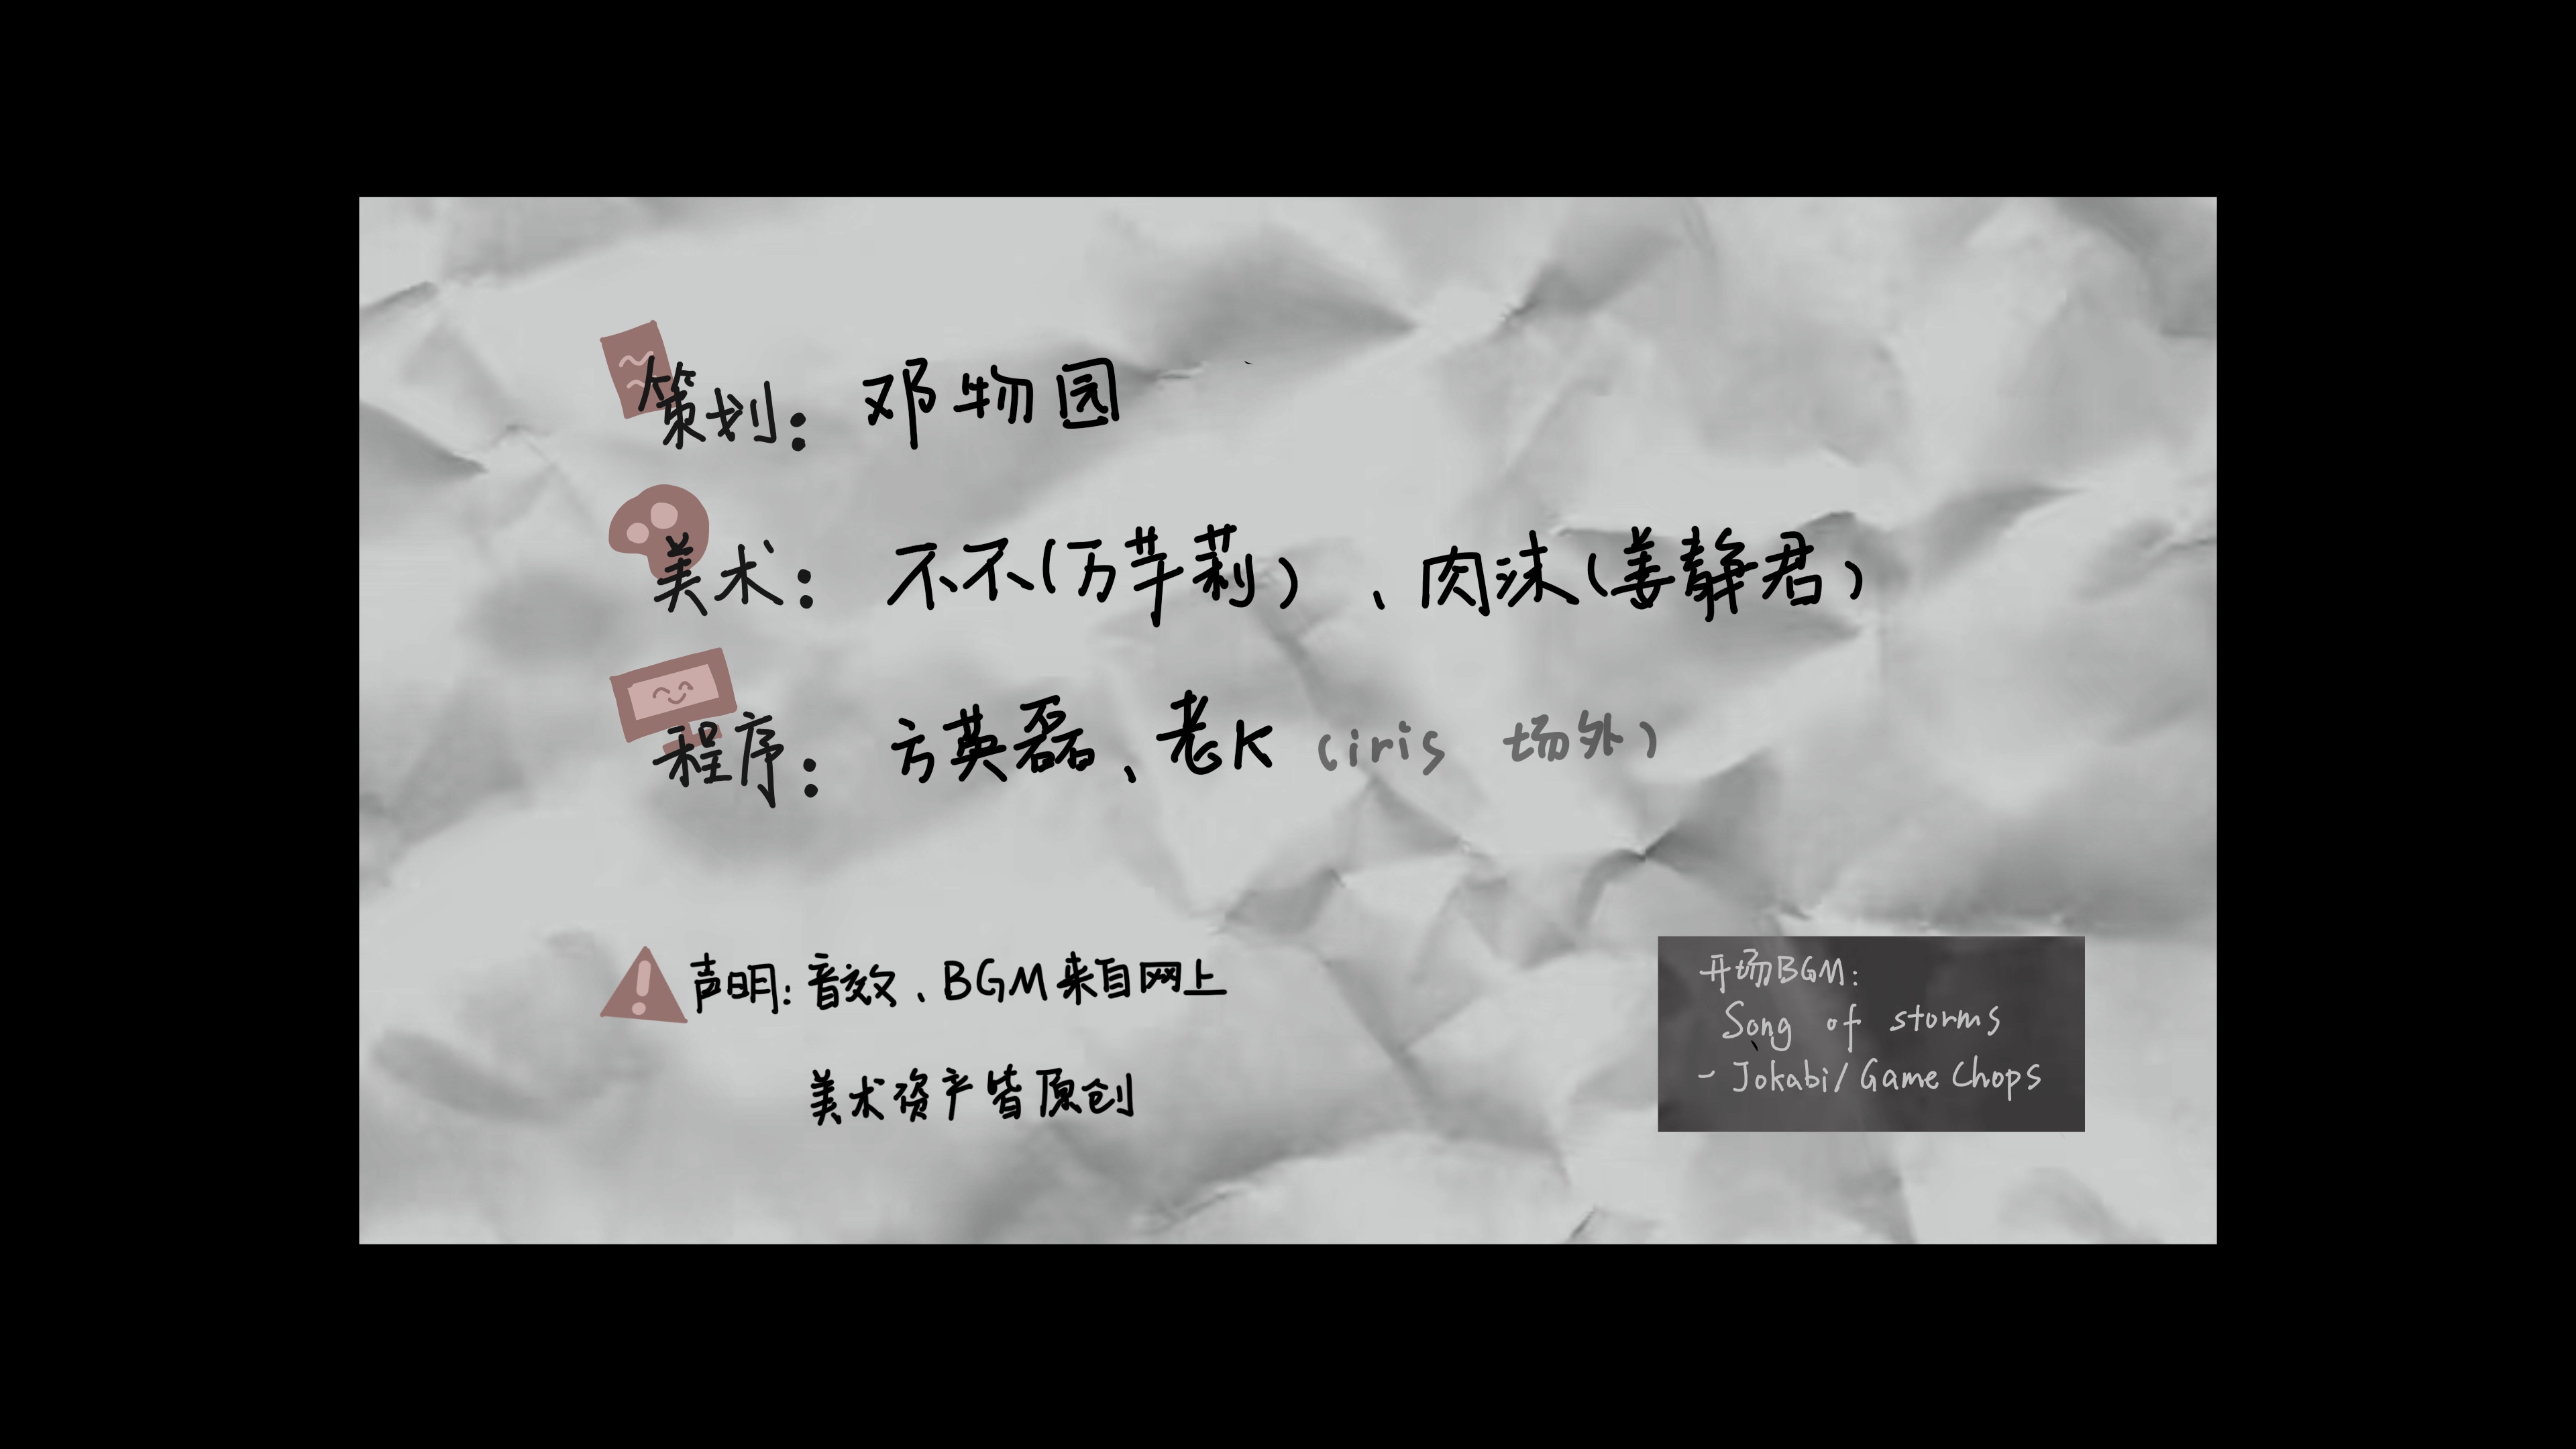 策划：邓物园
美术：不不(万芊莉)、肉沫(姜静君)
程序：方英磊、老K (iris 场外)
声明：音效、BGM来自网上
美术资产皆原创
开场BGM:
Song of storms
- Jokabi/GameChops